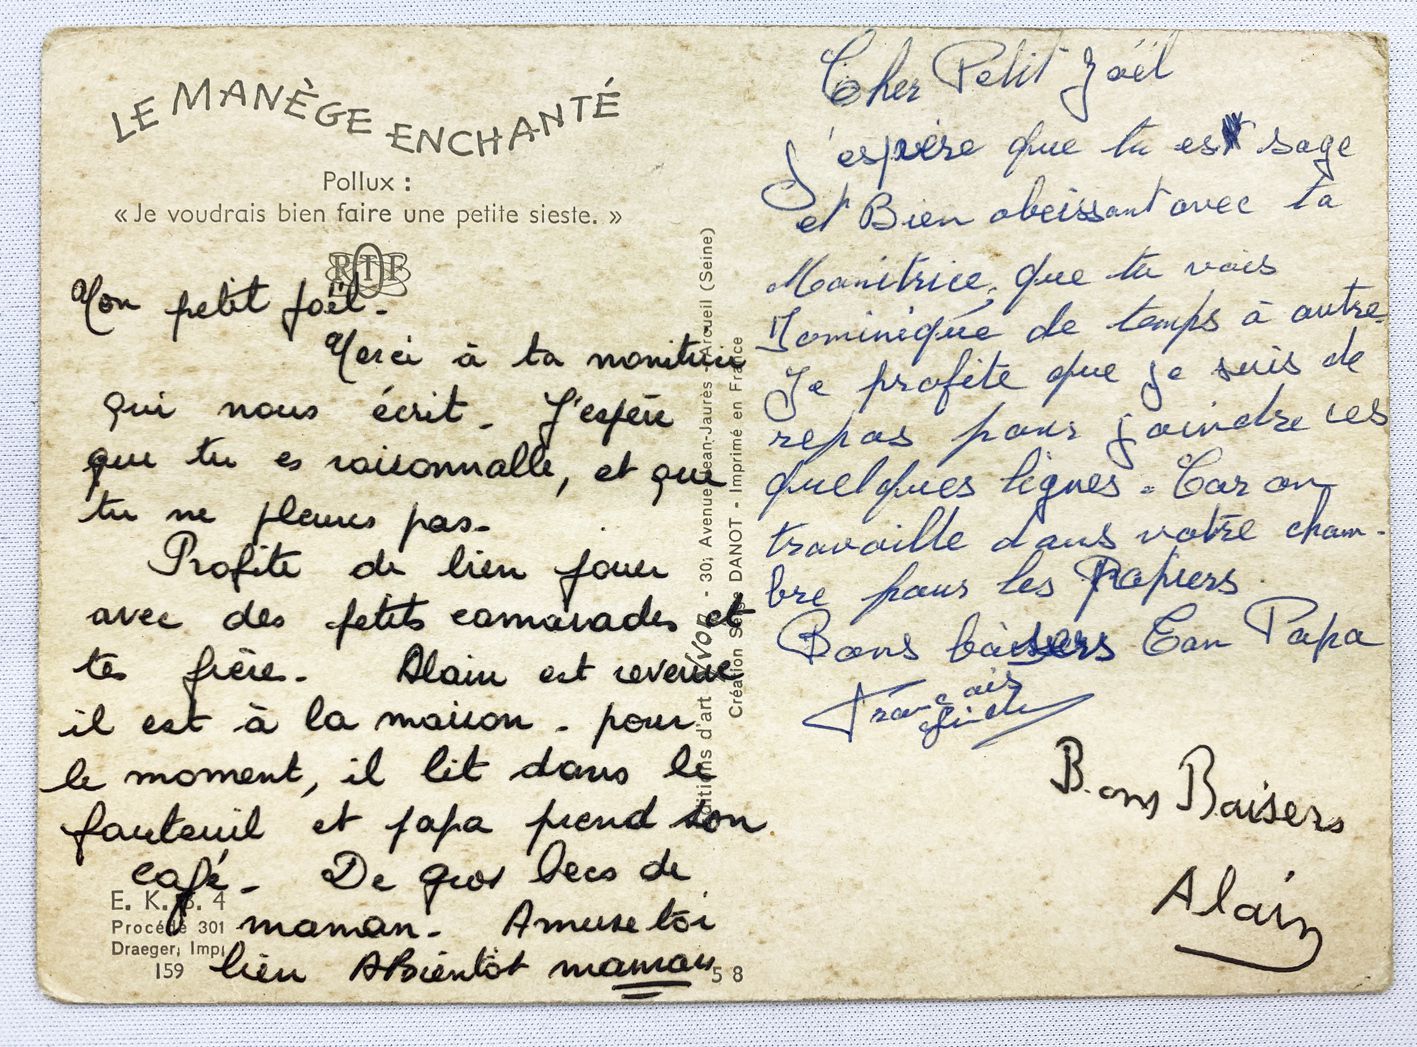 LE MANÈGE ENCHANTÉ
Pollux :
« Je voudrais bien faire une petite sieste. »
RTF
Mon petit Joël.
Merci à ta monitrice
qui nous écrit. J'espère
que tu es raisonnable, et que
tu ne pleures pas.
Profite de bien jouer
avec des petits camarades et
tes frère. Alain est revenue
il est à la maison. pour
le moment, il lit dans le
fauteuil et papa prend son
café. De gros becs de
maman. Amuse toi
bien ABientôt maman
E. K. B. 4
Procédé 301
Draeger, Imp.
159
58
Editions d'art Yvon - 30, Avenue Jean-Jaurès - Arcueil (Seine)
Création Serge DANOT - Imprimé en France
Cher Petit Joël
J'espère que tu es sage
et Bien obeissant avec ta
Monitrice, que tu vois
Dominique de temps à autre.
Je profite que je suis de
repos pour joindre ces
quelques lignes. Car on
travaille dans votre cham-
bre pour les Papiers
Bons baisers Ton Papa
François
Bons Baisers
Alain